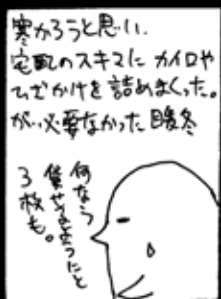 寒かろうと思い、
宅配のスキマに カイロや
ひざかけを 詰めまくった。
が、必要なかった 暖冬
何なら
貸せるよったと
3枚も。